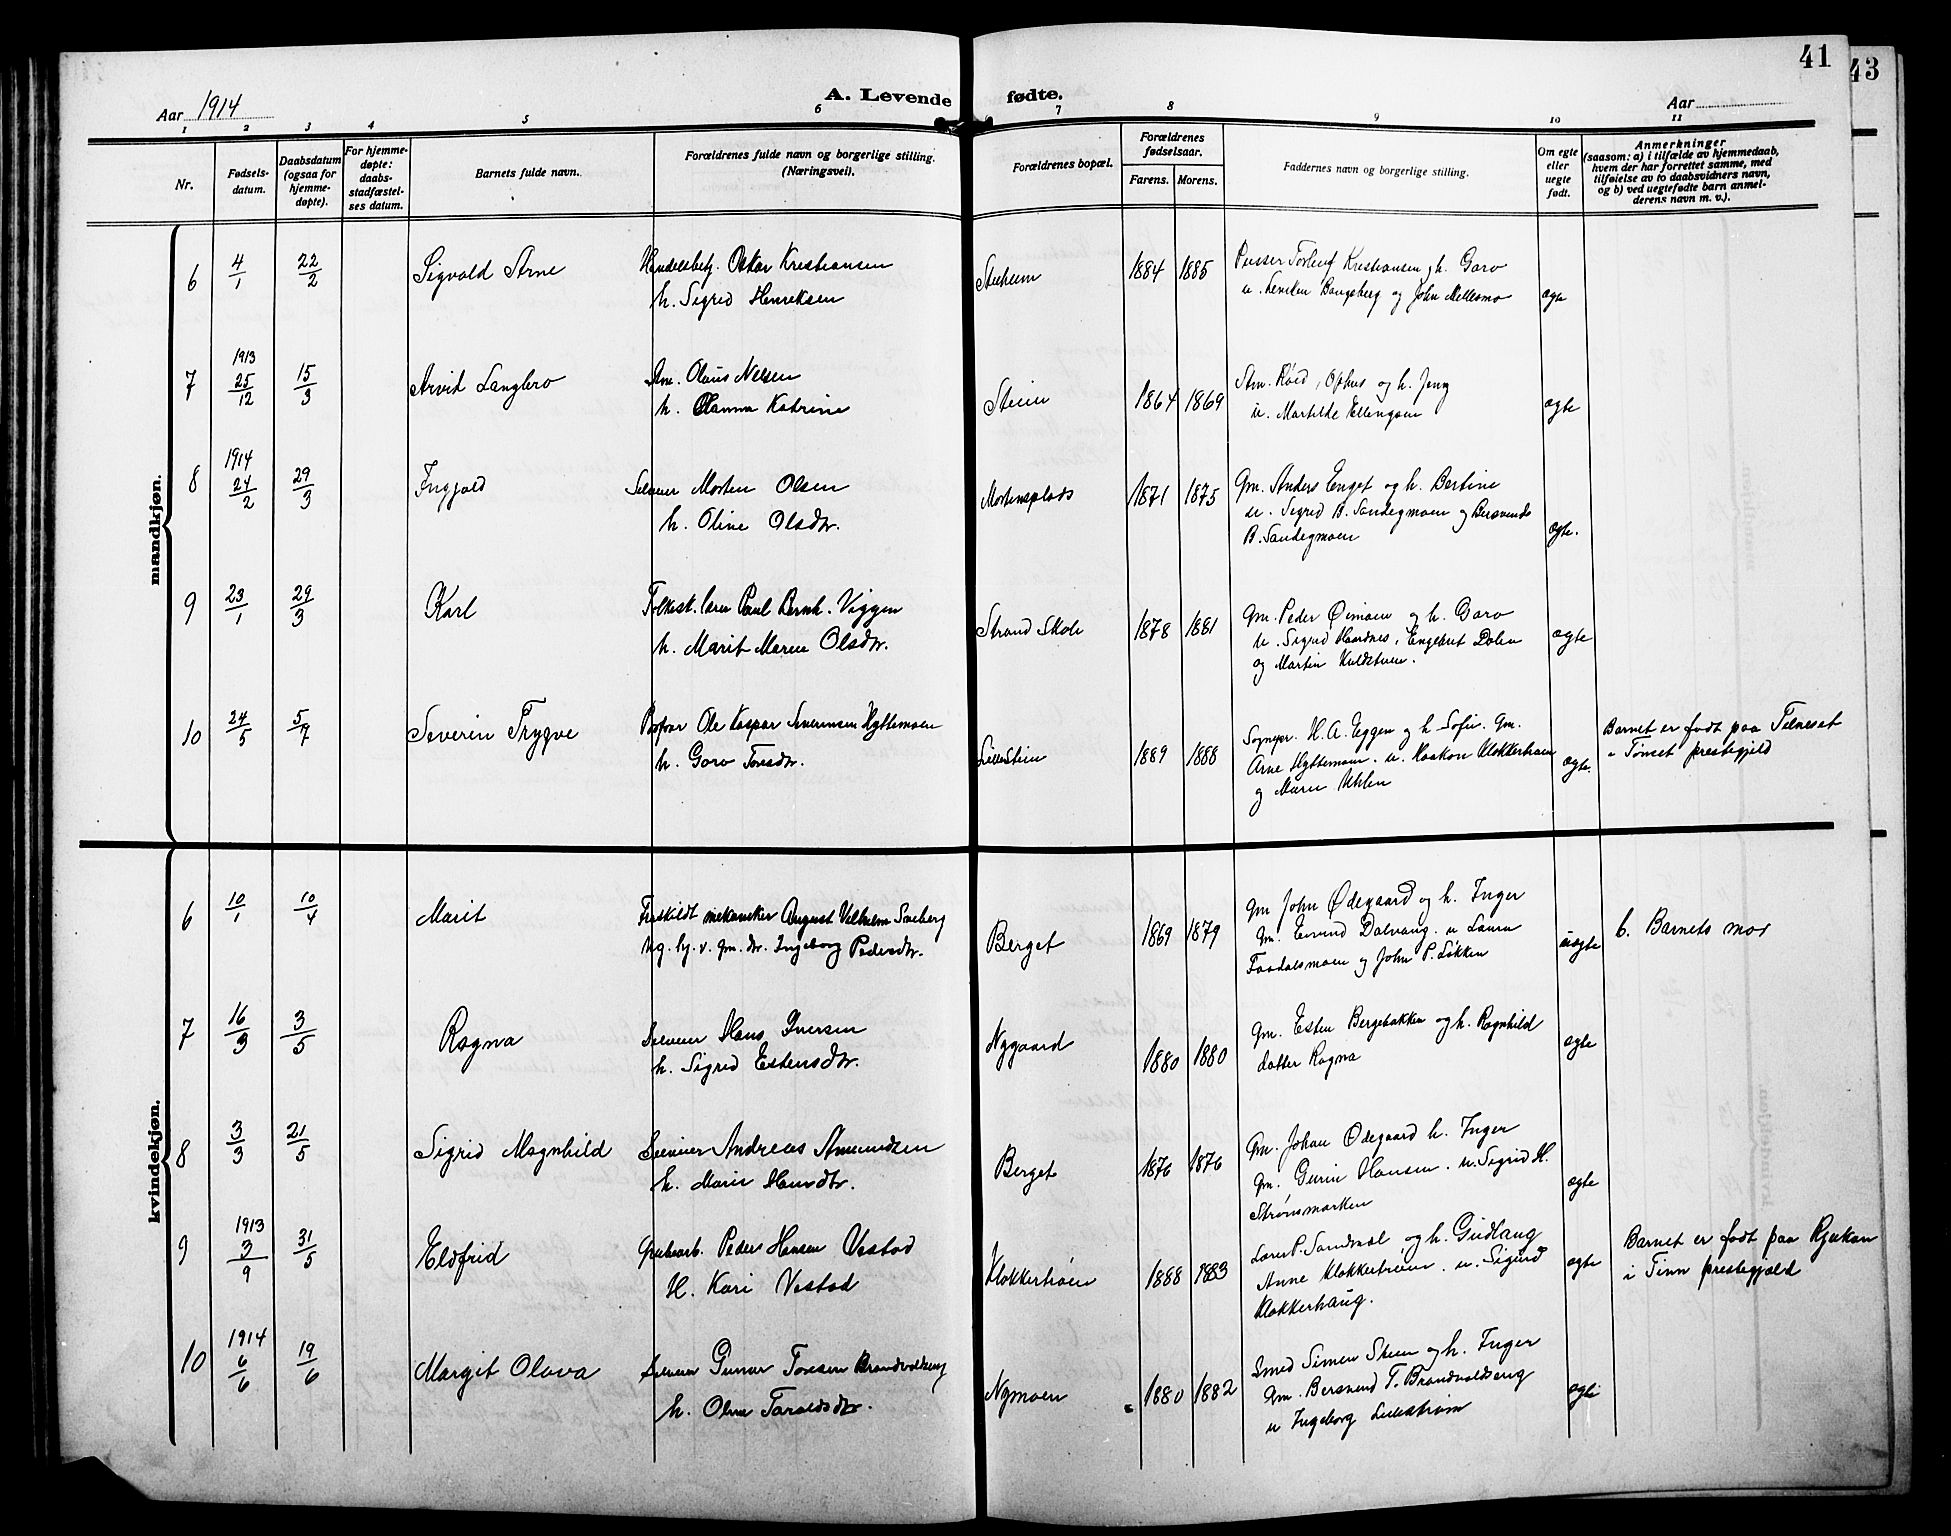 41
43
Aar 1914
A. Levende fødte.
Aar
1 2 3 4 5 6 7 8 9 10 11
Nr.
Fødsels-
datum.
Daabsdatum
(ogsaa for
hjemme-
døpte).
For hjemme-
døpte:
daabs-
stadfæstel-
ses datum.
Barnets fulde navn.
Forældrenes fulde navn og borgerlige stilling.
(Næringsvei).
Forældrenes bopæl.
Forældrenes
fødselsaar.
Farens. Morens.
Faddernes navn og borgerlige stilling.
Om egte
eller
uegte
født.
Anmerkninger
(saasom: a) i tilfælde av hjemmedaab,
hvem der har forrettet samme, med
tilføielse av to daabsvidners navn,
og b) ved uegtefødte barn anmel-
derens navn m. v.).
mandkjøn.
6 4/1 22/2 Sigvald Arne Handelsbetj. Oskar Kristiansen
h. Sigrid Henriksen
1884 1885 Torleif Kristiansen, h. Goro
og John Mellesmo
egte
7 1913 25/12 15/3 Arvid Langbro Olaus Nelsen
h. Olanna Katrine
Steien 1864 1869 og h. Jenny
u. Martilde Ellengsen
egte
8 1914 24/2 29/3 Ingjald Selveier Morten Olsen
h. Oline Olsdtr.
Mortensplads 1871 1875 Gm. Anders Enget og h. Bertine
u. Sigrid B. Sandegmoen og
B. Sandegmoen
egte.
9 23/1 29/3 Karl Folkesk. lærer Paul Bernh. Viggen
h. Marit Maren Olsdtr.
Strand Skole 1878 1881 Gm. Peder Øimoen og h. Goro
u. Sigrid Engebret Dalen
og Martin
egte
10 24/5 5/7 Severin Trygve Ole Kaspar Severinsen Hyttemoen
h. Goro Toresdtr.
Lillesteien 1889 1888 Sognepr. H. A. Eggen og h. Sofie. Gm.
Arne Hyttemoen. u. Haakon Klokkerhaug
og Maren Uhlen
egte.
Barnet er født paa Telneset
i Tønset prestegjeld
kvindekjøn.
6 10/1 10/4 Marit Fraskildt mekaniker August Vilhelm
Ug. Pj. v. Gm. dtr. Ingeborg Pedersdtr.
Berget 1869 1879 Gm John Ødegaard og h. Inger
Gm. Eivind Dalvang. u Laura
og John P. Løkken
uegte
b. Barnets mor
7 16/3 3/5 Ragna Selveier Hans Iversen
h. Sigrid Estensdtr.
Nygaard 1880 1880 Gm. Esten Bergebakken og h. Ragnhild
datter Ragna
egte
8 3/3 21/5 Sigrid Magnhild Selveier Andreas Amundsen
h. Marie Hansdtr.
Berget 1876 1876 Gm. Johan Ødegaard h. Inger
Gm. Hansen. u. Sigrid H.
Strømsmarken
egte
9 1913 3/9 31/5 Eldfrid Grubearb. Peder Hansen Vestad
H. Kari Vestad
Klokkerhøien 1888 1883 Lærer P. Sandmæl og h. Gudlaug
Anne Klokkerhøien. u. Sigurd
Klokkerhaug.
egte
Barnet er født paa Rjukan
i Tinn prestegjæld
10 1914 6/6 19/6 Margit Olava Selveier Gunnar Toresen Brandvoldseng
h. Olava Taraldsdtr.
Nymoen 1880 1882 Smed Simen Steen og h. Inger
Gm. Bersvend T. Brandvoldseng
u Ingeborg Lillestrøm
egte